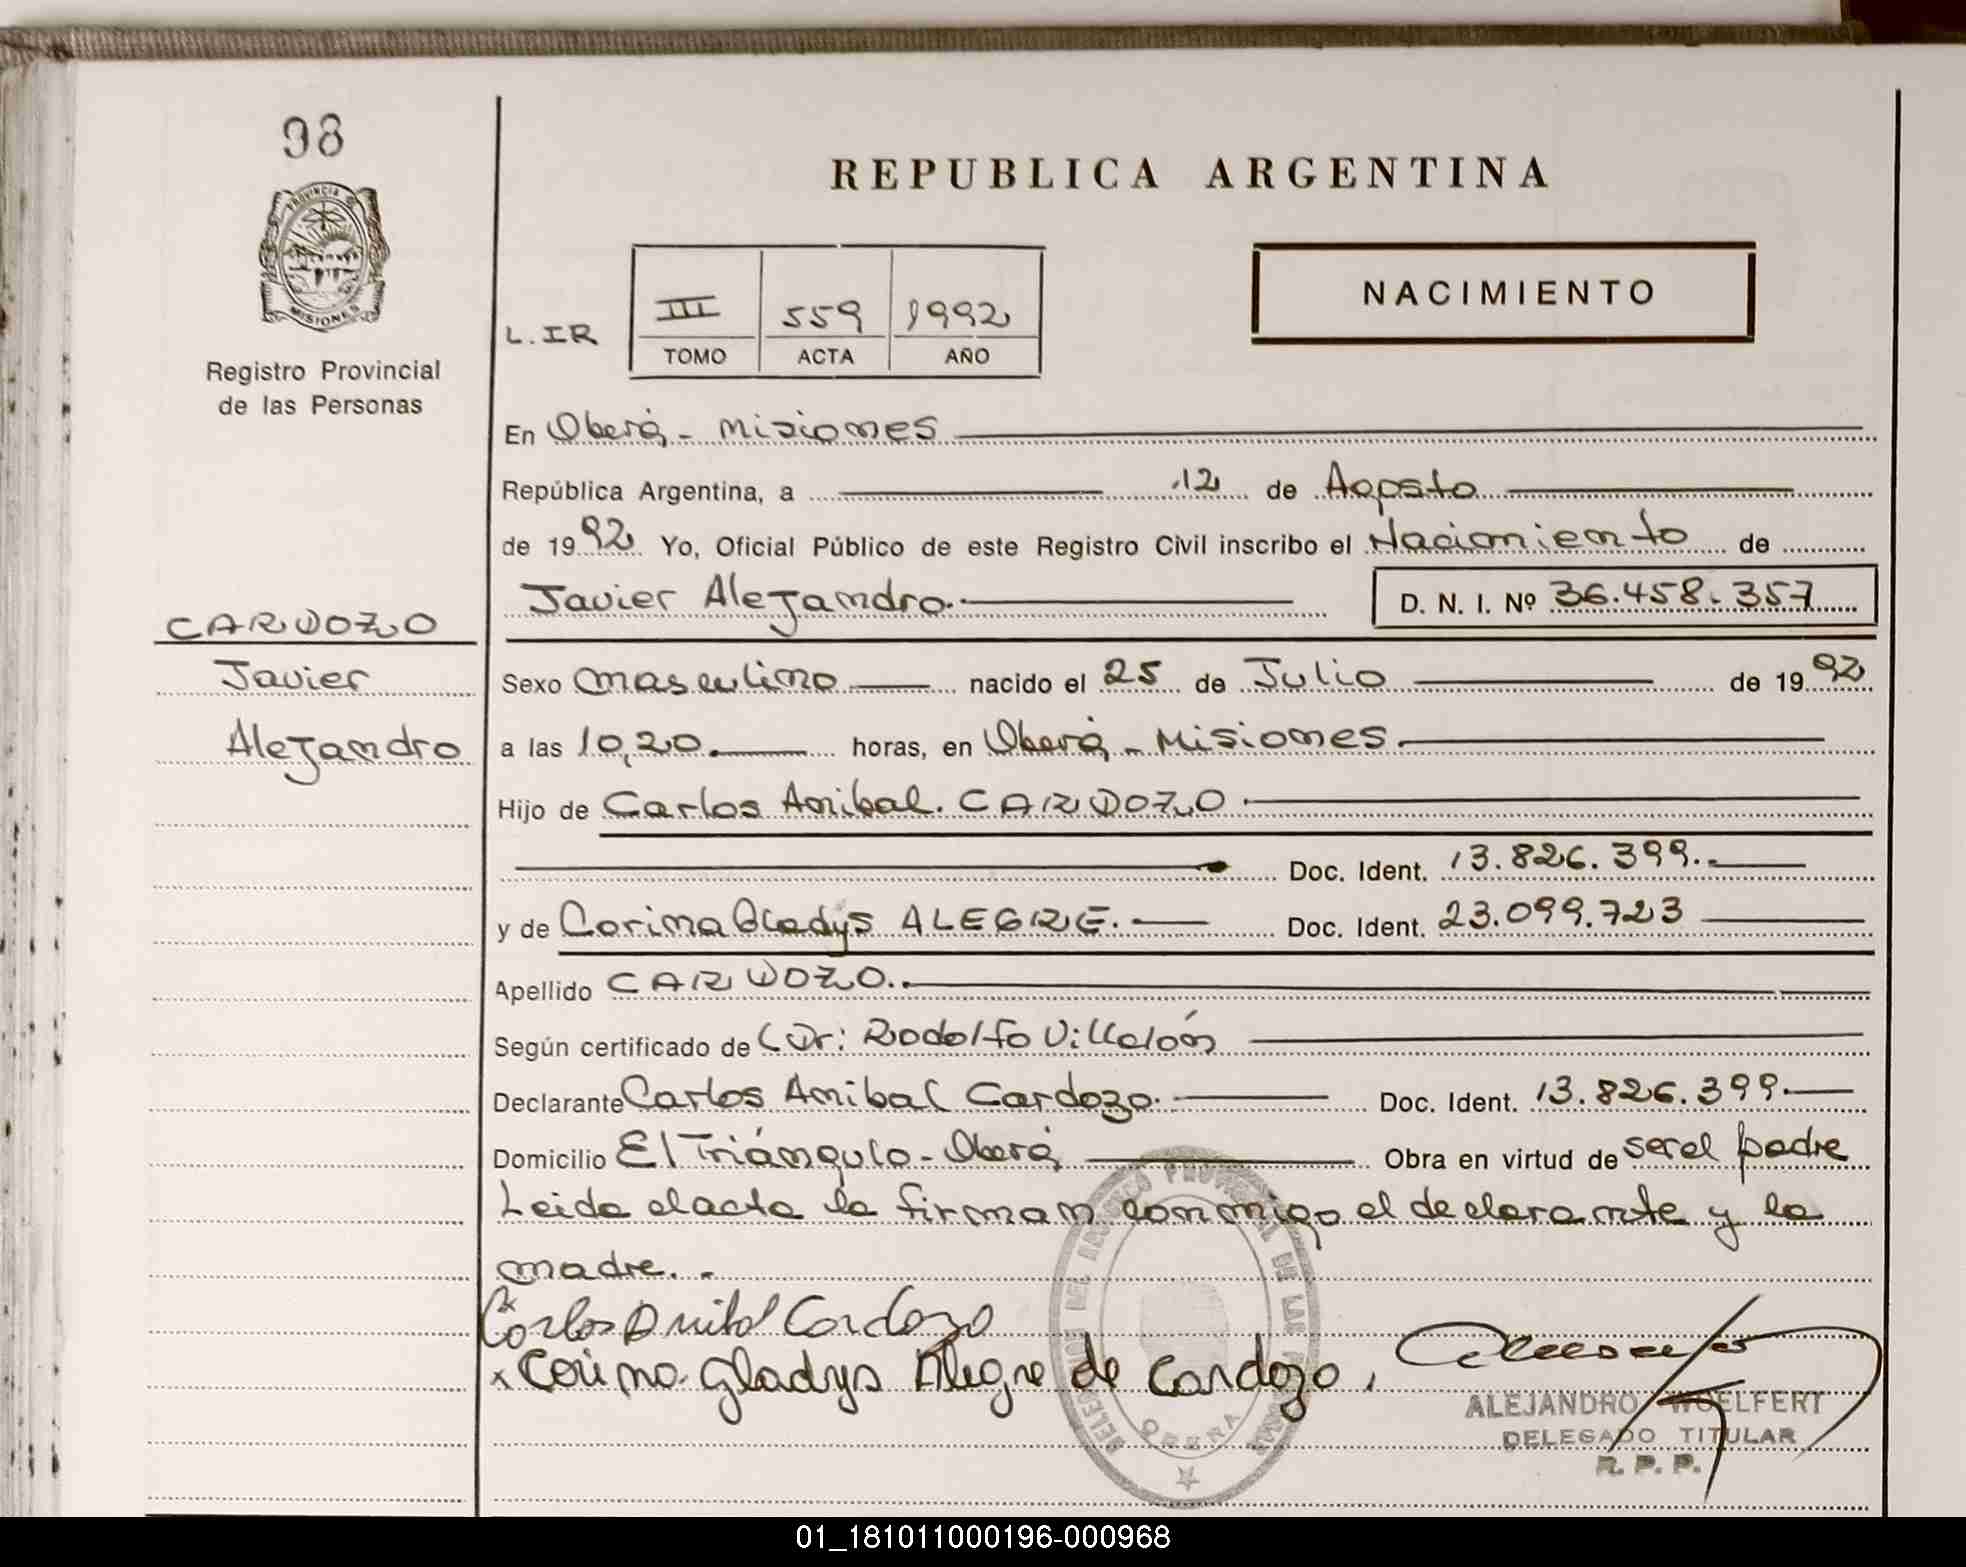 98
PROVINCIA
MISIONES
Registro Provincial
de las Personas
REPUBLICA ARGENTINA
NACIMIENTO
L. IR
III 559 1992
TOMO ACTA AÑO
En Oberá - Misiones
República Argentina, a 12 de Agosto
de 1992 Yo, Oficial Público de este Registro Civil inscribo el Nacimiento de
Javier Alejandro. D. N. I. Nº 36.458.357
CARDOZO
Javier
Alejandro
Sexo masculino nacido el 25 de Julio de 1992
a las 10,20. horas, en Oberá - Misiones.
Hijo de Carlos Anibal. CARDOZO.
Doc. Ident. 13.826.399.
y de Corina Gladys ALEGRE. Doc. Ident. 23.099.723
Apellido CARDOZO.
Según certificado de Dr: Rodolfo Villalón
Declarante Carlos Anibal Cardozo. Doc. Ident. 13.826.399.
Domicilio El Triángulo - Oberá Obra en virtud de ser el padre
Leida el acta la firman conmigo el declarante y la
madre. -
x Carlos Anibal Cardozo
x Corina Gladys Alegre de Cardozo
OBERA
ALEJANDRO WOELFERT
DELEGADO TITULAR
R. P. P.
01_181011000196-000968